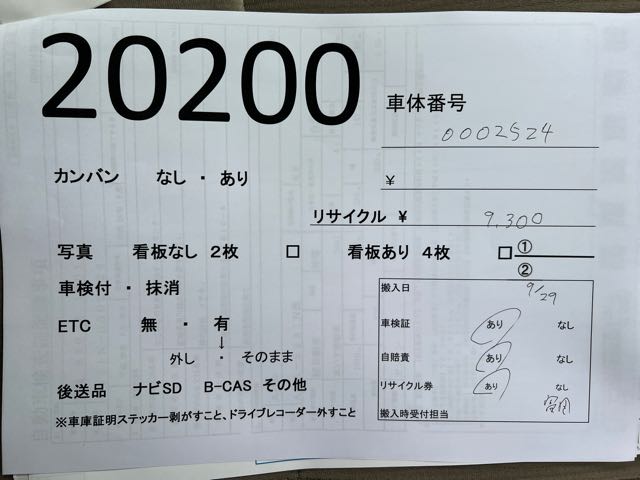 20200
車体番号
0002524
カンバン なし ・ あり
¥
リサイクル ¥ 9,300
写真 看板なし 2枚 □ 看板あり 4枚 □ ①
②
車検付 ・ 抹消
ETC 無 ・ 有
↓
外し ・ そのまま
後送品 ナビSD B-CAS その他
※車庫証明ステッカー剥がすこと、ドライブレコーダー外すこと
搬入日 9/29
車検証 あり なし
自賠責 あり なし
リサイクル券 あり なし
搬入時受付担当